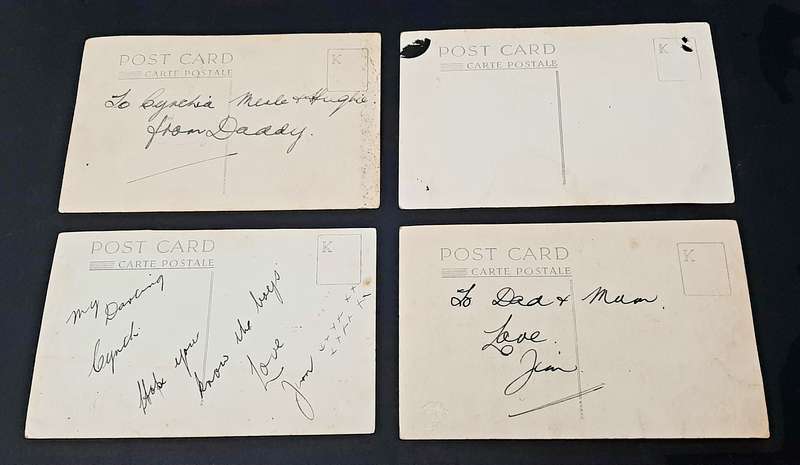 POST CARD
CARTE POSTALE
K
To Cynthia Merle & Hughie.
from Daddy.
POST CARD
CARTE POSTALE
K
POST CARD
CARTE POSTALE
K
My Darling
Cynch.
Hope you
know the boys
Love
Jim xxxx xx
xxxx x
POST CARD
CARTE POSTALE
K
To Dad & Mum.
Love.
Jim.